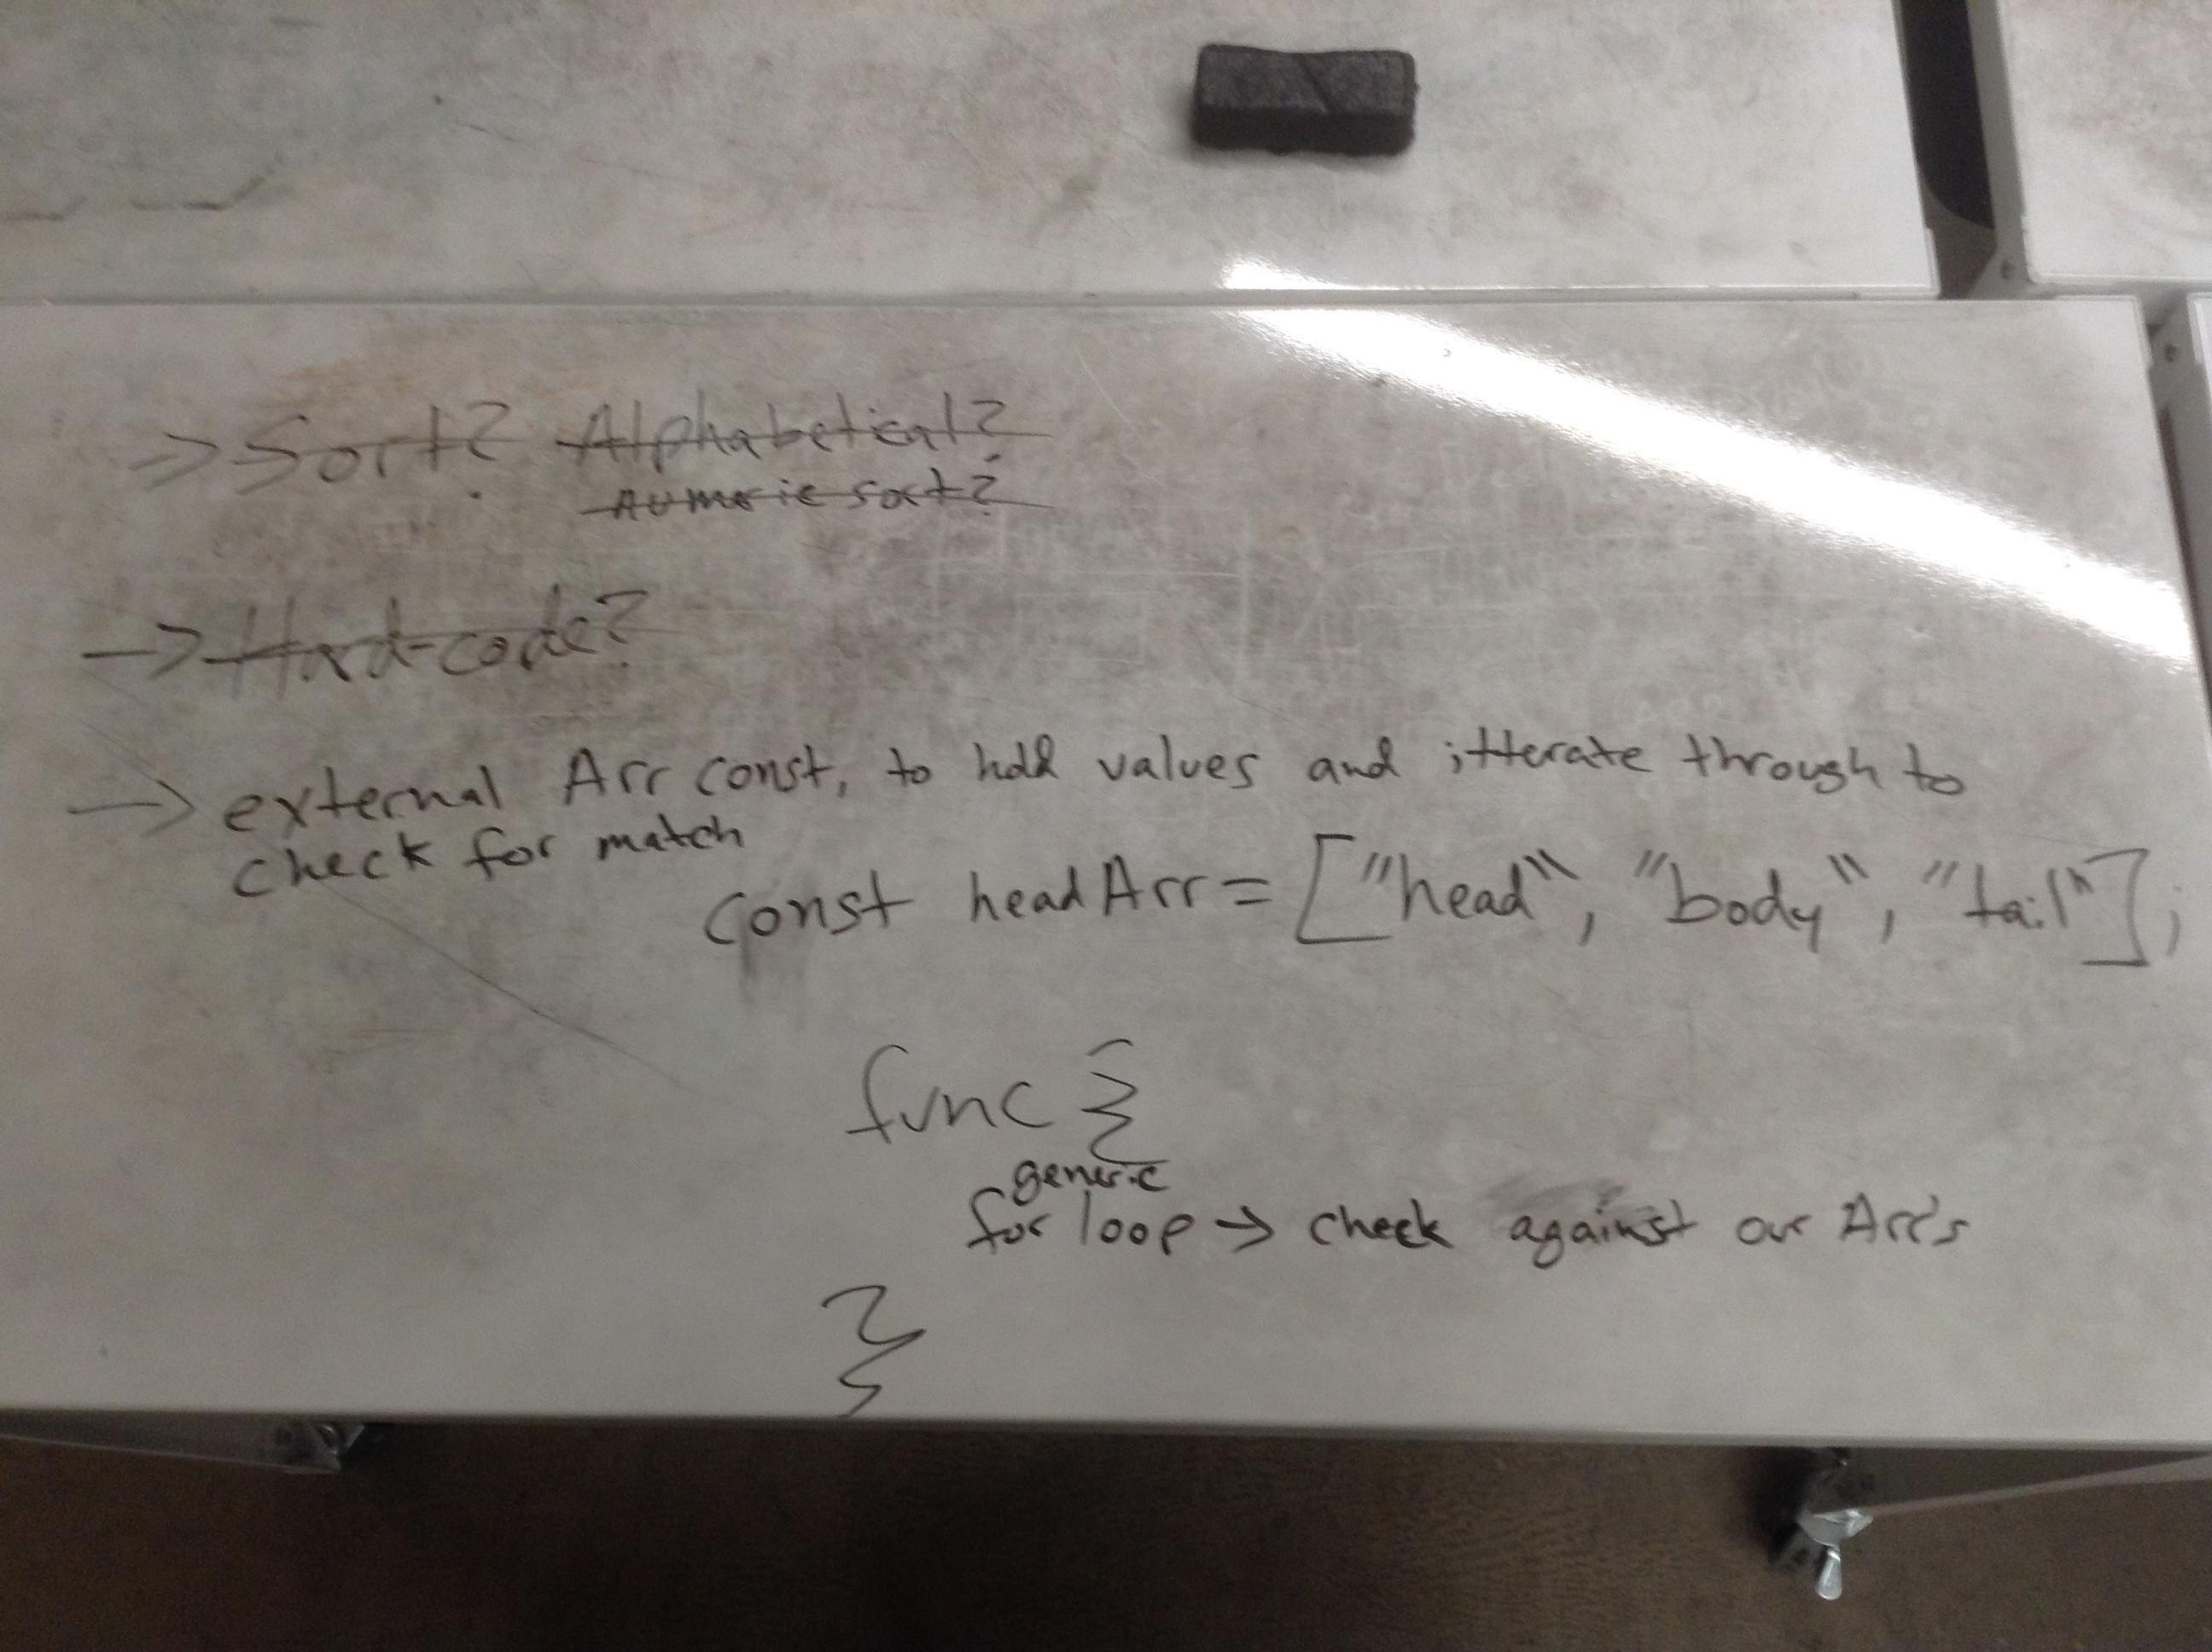 => Sort? Alphabetical?
numeric sort?
-> Hard-code?
-> external Arr const, to hold values and itterate through to
check for match
const headArr = ["head", "body", "tail"];
func {
generic
for loop -> check against our Arr's
}